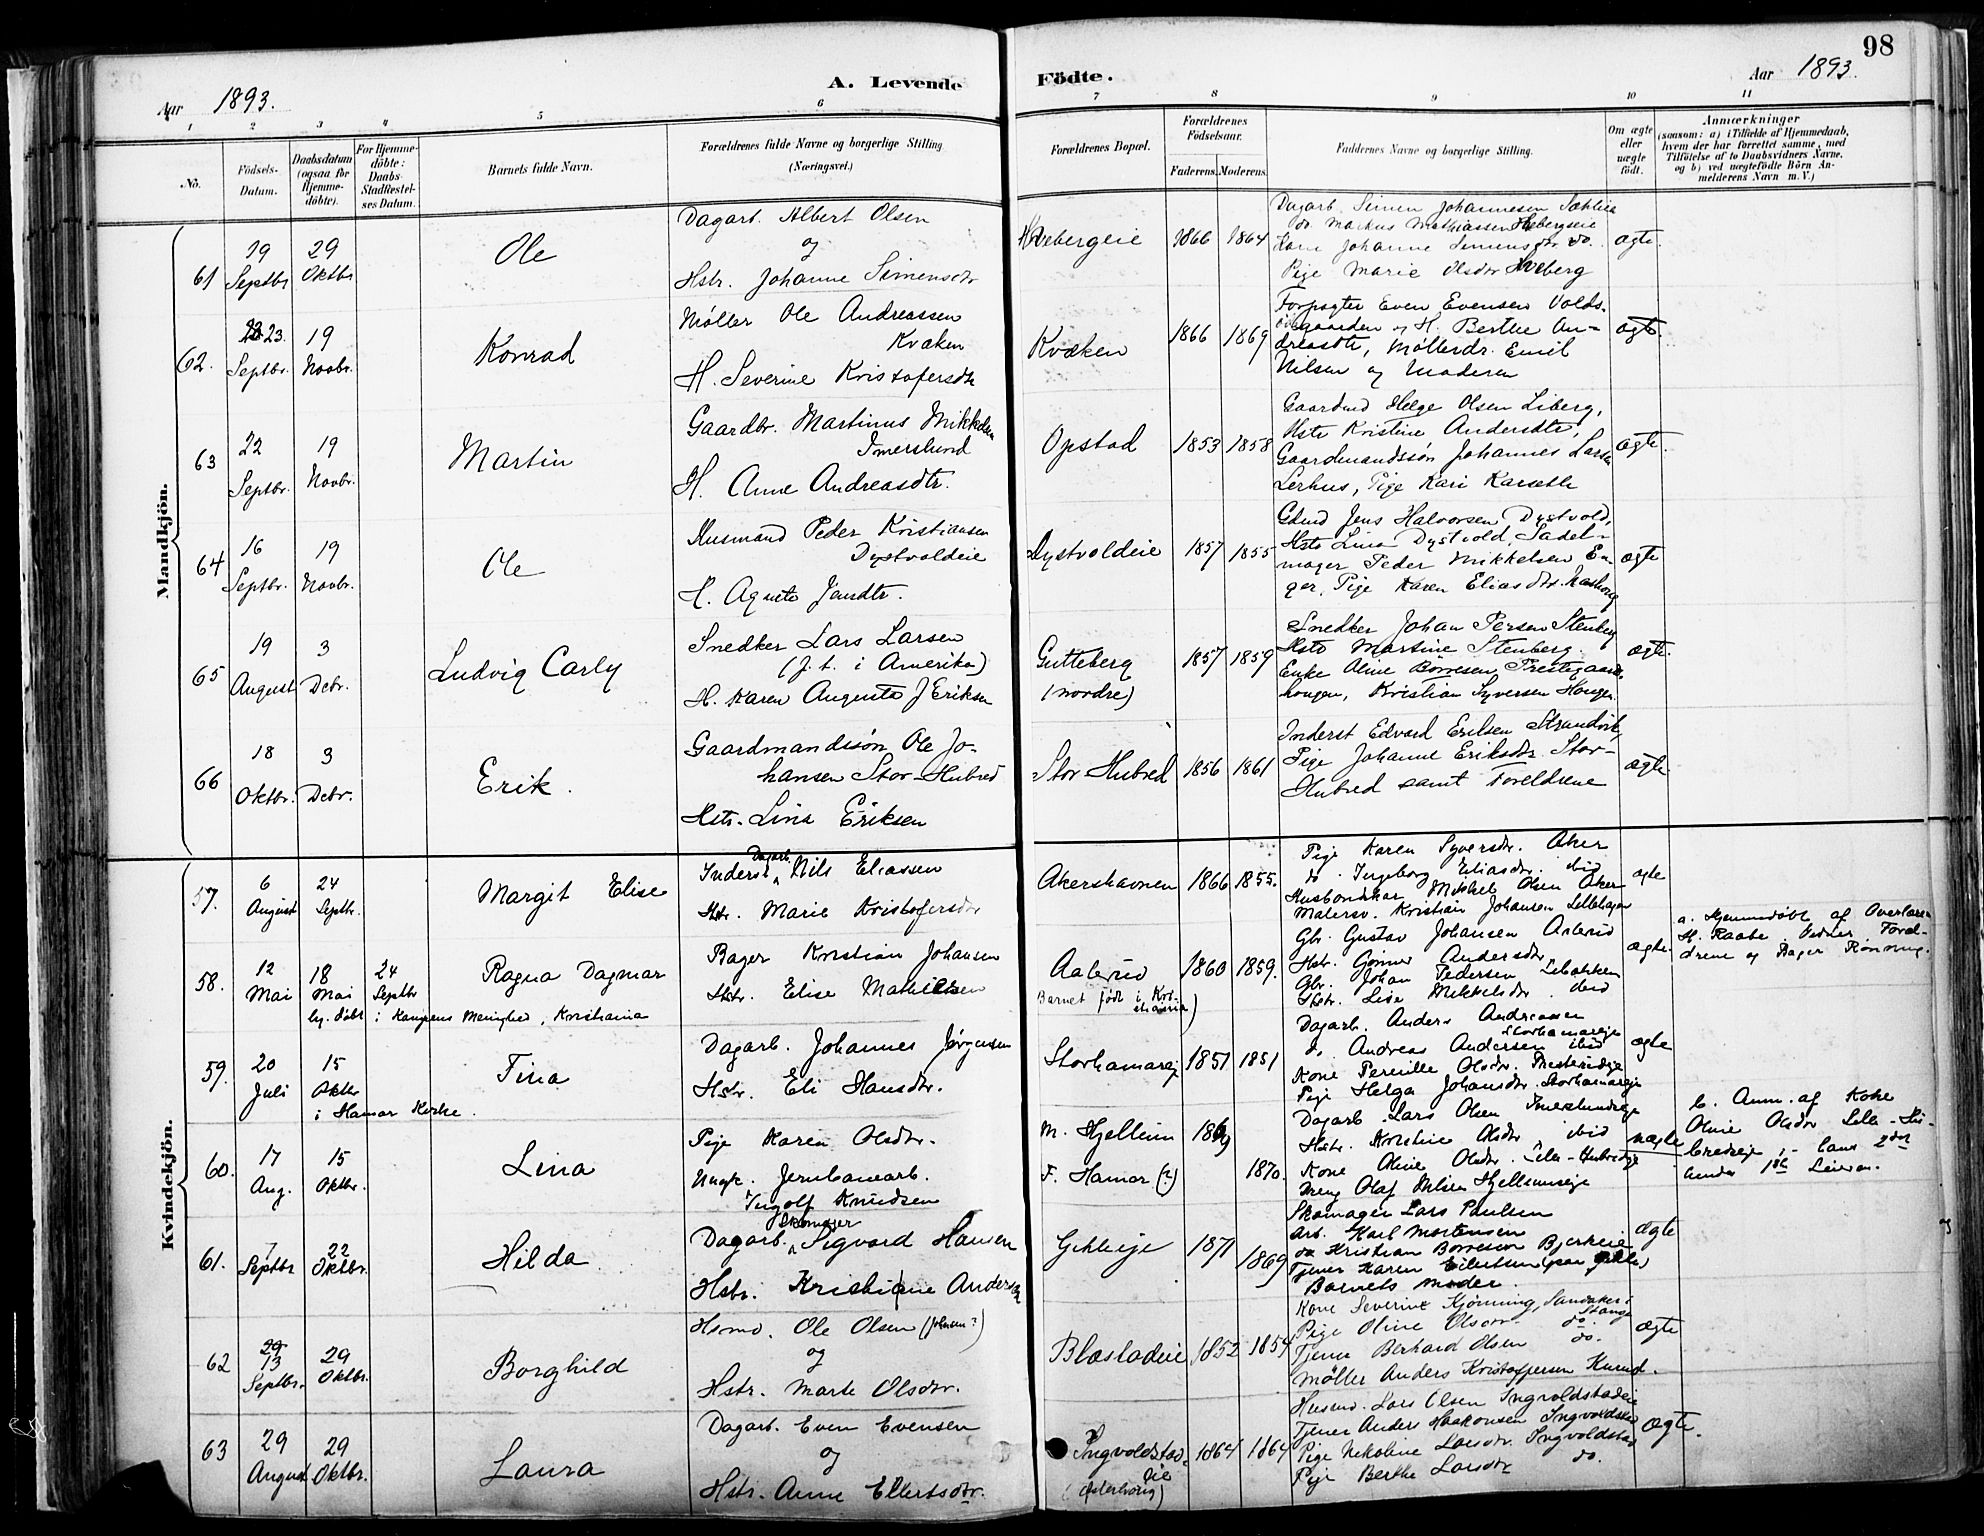 98
Aar 1893.
A. Levende
Födte.
Aar 1893.
1 2 3 4 5 6 7 8 9 10 11
No.
Födsels-
Datum.
Daabsdatum
(ogsaa for
Hjemme-
döbte).
For Hjemme-
döbte:
Daabs-
Stadfæstel-
ses Datum.
Barnets fulde Navn.
Forældrenes fulde Navne og borgerlige Stilling
(Næringsvei.)
Forældrenes Bopæl.
Forældrenes
Födselsaar.
Faderens.
Moderens.
Faddernes Navne og borgerlige Stilling.
Om ægte
eller
uægte
födt.
Anmærkninger
(saasom: a) i Tilfælde af Hjemmedaab,
hvem der har forrettet samme, med
Tilföielse af to Daabsvidners Navne,
og b) ved uægtefödte Börn An-
melderens Navn m. V.)
Mandkjön.
61
19
Septbr
29
Oktbr
Ole
Dagarb. Albert Olsen
og
Hstr. Johanne Simensdtr
Hvebergeie
1866
1864
Dagarb. Simen Johannesen
do. Markus Mathiassen Hvebergseie
Kone Johanne Simensdtr do.
Pige Marie Olsdtr Hveberg
ægte.
62.
23.
Septbr.
19
Novbr.
Konrad
Møller Ole Andreassen
Kvæken
H. Severine Kristofersdtr
Kvæken
1866
1869
Forpagter Even Evensen Volds-
gaarden og H. Berthe An-
dreasdtr, Møllerdr. Emil
Nilsen og Moderen
ægte.
63
22
Septbr.
19
Novbr.
Martin
Gaardbr. Martinus Mikkelsen
Imerslund
H. Anne Andreasdtr.
Opstad
1853
1858
Gaardmd Helge Olsen Liberg,
Hstr Kristine Andersdtr,
Gaardmandssøn Johannes Larsen
Lerhus, Pige Kari Karseth
ægte.
64
16
Septbr.
19
Novbr.
Ole
Husmand Peder Kristiansen
Dystvoldeie
H. Agnete Jensdtr.
Dystvoldeie
1857
1855
Gdmd Jens Halvorsen Dystvold,
Hstr Lina Dystvold, Sadel-
mager Peder Mikkelsen En-
ger, Pige Karen Eliasdtr.
ægte
65
19
August
3
Debr.
Ludvig Carly
Snedker Lars Larsen
(f. t. i Amerika)
H. Karen Augusta J Eriksen
Gutteberg
(nordre)
1857
1859
Snedker Johan Persen Stenberg
Hstr Martine Stenberg.
Enke Aline Børresen Prestegaards-
haugen, Kristian Syversen Haugen.
ægte.
66
18
Oktbr.
3
Debr.
Erik.
Gaardmandssøn Ole Jo-
hansen Stor-Hubred
Hstr. Lina Eriksen
Stor Hubred
1856
1861
Inderst Edvard Eriksen Strandvik,
Pige Johanne Eriksdtr. Stor-
Hubred samt Foreldrene
ægte
Kvindekjön.
57.
6
August
24
Septbr.
Margit Elise
Dagarb.
Inderst Nils Eliassen
Hstr. Marie Kristofersdtr
Akershavnen
1866
1855.
Pige Karen Syversdtr. Aker
do. Ingeborg Eliasdtr. ibid
Husbondskar Mikkel Olsen Aker
Malersv. Kristian Johansen Lillehagen
ægte
58.
12
Mai
18
Mai
24
Septbr
hj. døbt i Kampens Menighed, Kristiania
Ragna Dagmar
Bager Kristian Johansen
Hstr. Elise Mathiesen
Aalerud
Barnet født i Kri-
stiania)
1860
1859.
Gbr. Gustav Johansen Aalerud
Hstr. Gunner Andersdtr.
Gbr. Johan Pedersen
Hstr. Lise Mikkelsdtr. ibid
ægte.
a. Hjemmedøbt af Overlærer
H. Raabe. Vidner Foræl-
drene og Bager Rønning.
59.
20
Juli
15
Oktbr
i Hamar Kirke.
Fina
Dagarb. Johannes Jørgensen
Hstr. Eli Hansdtr.
Storhamareje
1851
1851
Dagarb. Anders Andreassen
Storhamareje
do. Andreas Andersen ibid
Kone Pernille Olsdtr. Presterudeje
Pige Helga Johansdtr. Storhamareje
ægte
60.
17
Aug.
15
Oktbr.
Lina
Pige Karen Olsdtr.
Ungk. Jernbanearb.
Ingolf Knudsen
M. Hjellum
F. Hamar (?)
1869
1870.
Dagarb. Lars Olsen Imerslundseje
Hstr. Kristine Olsdtr. ibid
Kone Oline Olsdtr. Lille-Hubredeje
Dreng Olaf Nilsen Hjellumseje
uægte
b. Anm. af Kone
Oline Olsdtr Lille-Hu-
bredeje
61.
7
Septbr
22
Oktbr.
Hilda
Skomager
Dagarb. Sigvard Hansen
Hstr. Kristiane Andersen
1871
1869
Skomager Lars Paulsen
Arb. Karl Mortensen
do Kristian Børresen Bjerkeeie
Tjener Karen Eilertsen
Barnets Moder.
ægte
62
29
13
Septbr.
29
Oktbr.
Borghild
Hsmd. Ole Olsen
og
Hstr. Marte Olsdtr.
Blæstadeie
1852
1854
Kone Severine Kjønning, Sandaker i
Stange
Pige Oline Olsdtr. do.
Tjener Berhard Olsen do.
Møller Anders Kristoffersen Kurud.
ægte
63
29
August
29
Oktbr.
Laura
Dagarb. Even Evensen
og
Hstr. Anne Ellertsdtr.
Ingvoldstad-
eie
1864
1864
Husmd. Lars Olsen Ingvoldstadeie
Tjener Anders Haakonsen Ingvoldstad
Pige Nikoline Larsdtr. Ingvoldstad
Pige Berthe Larsdtr do.
ægte.